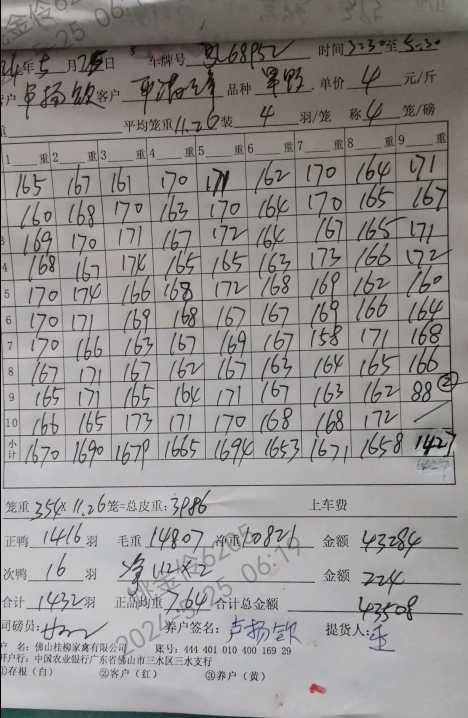 24年5月25日 车牌号 粤E68952 时间3:30至5:30
户 卢扬欽 客户 品种 单价 4 元/斤
重 平均笼重 11.26 装 4 羽/笼 称 4 笼/磅
1 重 2 重 3 重 4 重 5 重 6 重 7 重 8 重 9 重
165 167 161 170 171 162 170 164 171
160 168 170 163 170 164 170 165 167
3 169 170 171 167 172 164 167 165 171
4 168 167 174 165 165 163 173 166 172
5 170 174 166 168 172 168 169 162 160
6 170 171 169 168 167 167 169 166 164
7 170 166 163 167 169 167 158 171 168
8 167 171 167 162 167 163 164 165 166
9 165 171 165 164 171 167 163 162 88 ②
10 166 165 173 171 170 168 168 172
小计 1670 1690 1679 1665 1694 1653 1671 1658 1427
笼重 354×11.26 笼=总皮重: 3986 上车费
正鸭 1416 羽 毛重 14807 净重 10821 金额 43284
次鸭 16 羽 净 112×2 金额 224
合计 1432 羽 正品均重 7.64 合计总金额 43508
司磅员: 养户签名: 卢扬欽 提货人:
户 名: 佛山桂柳家禽有限公司 账号: 444 401 010 400 169 29
开户行: 中国农业银行广东省佛山市三水区三水支行
①存根（白） ②客户（红） ③养户（黄）